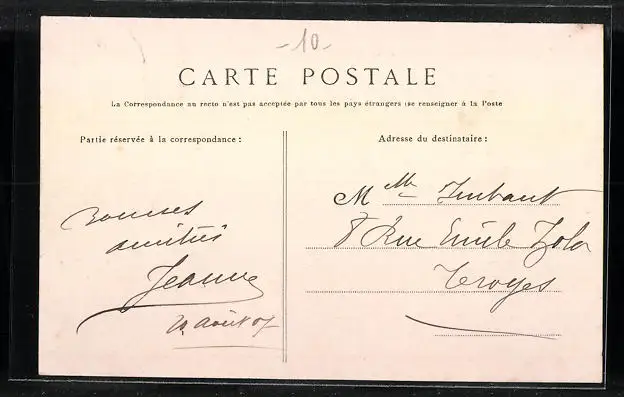 -10-
CARTE POSTALE
La Correspondance au recto n'est pas acceptée par tous les pays étrangers (se renseigner à la Poste
Partie réservée à la correspondance :
Adresse du destinataire :
Bonnes
amitiés
Jeanne
20 août 07
M lle Imbault
8 Rue Emile Zola
Troyes